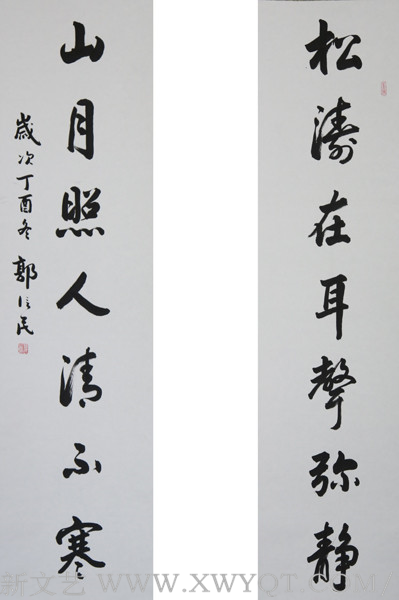 松濤在耳聲弥靜
山月照人清不寒
歲次丁酉冬 郭信民
新文艺 WWW.XWYQT.COM